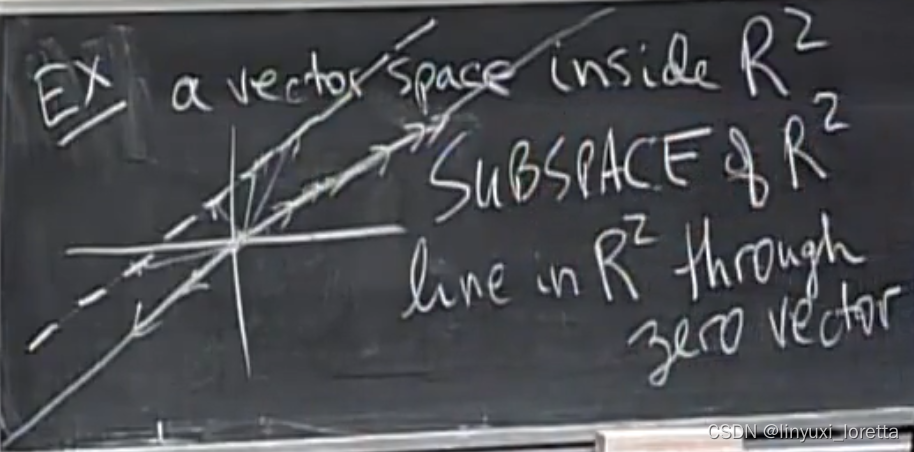 EX a vector space inside R²
SUBSPACE of R²
line in R² through
zero vector
CSDN @linyuxi_loretta